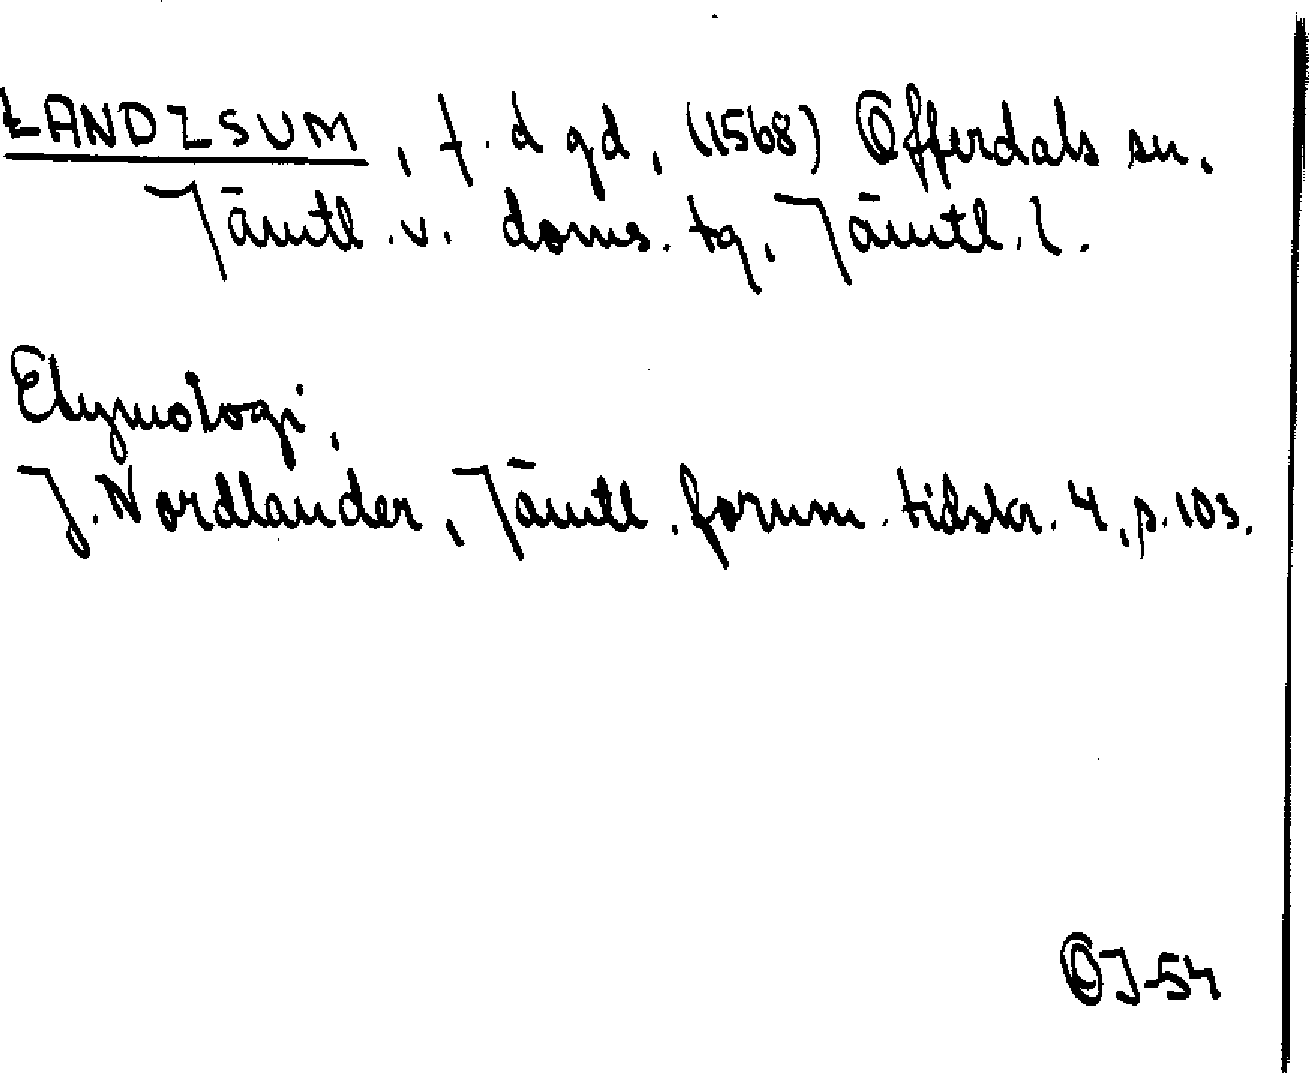 LANDZSUM, f. d gd, (1568) Offerdals sn.
Jämtl. v. doms. tg, Jämtl. l.
Etymologi,
J. Nordlander, Jämtl. fornm. tidskr. 4, p. 103.
OJ-54